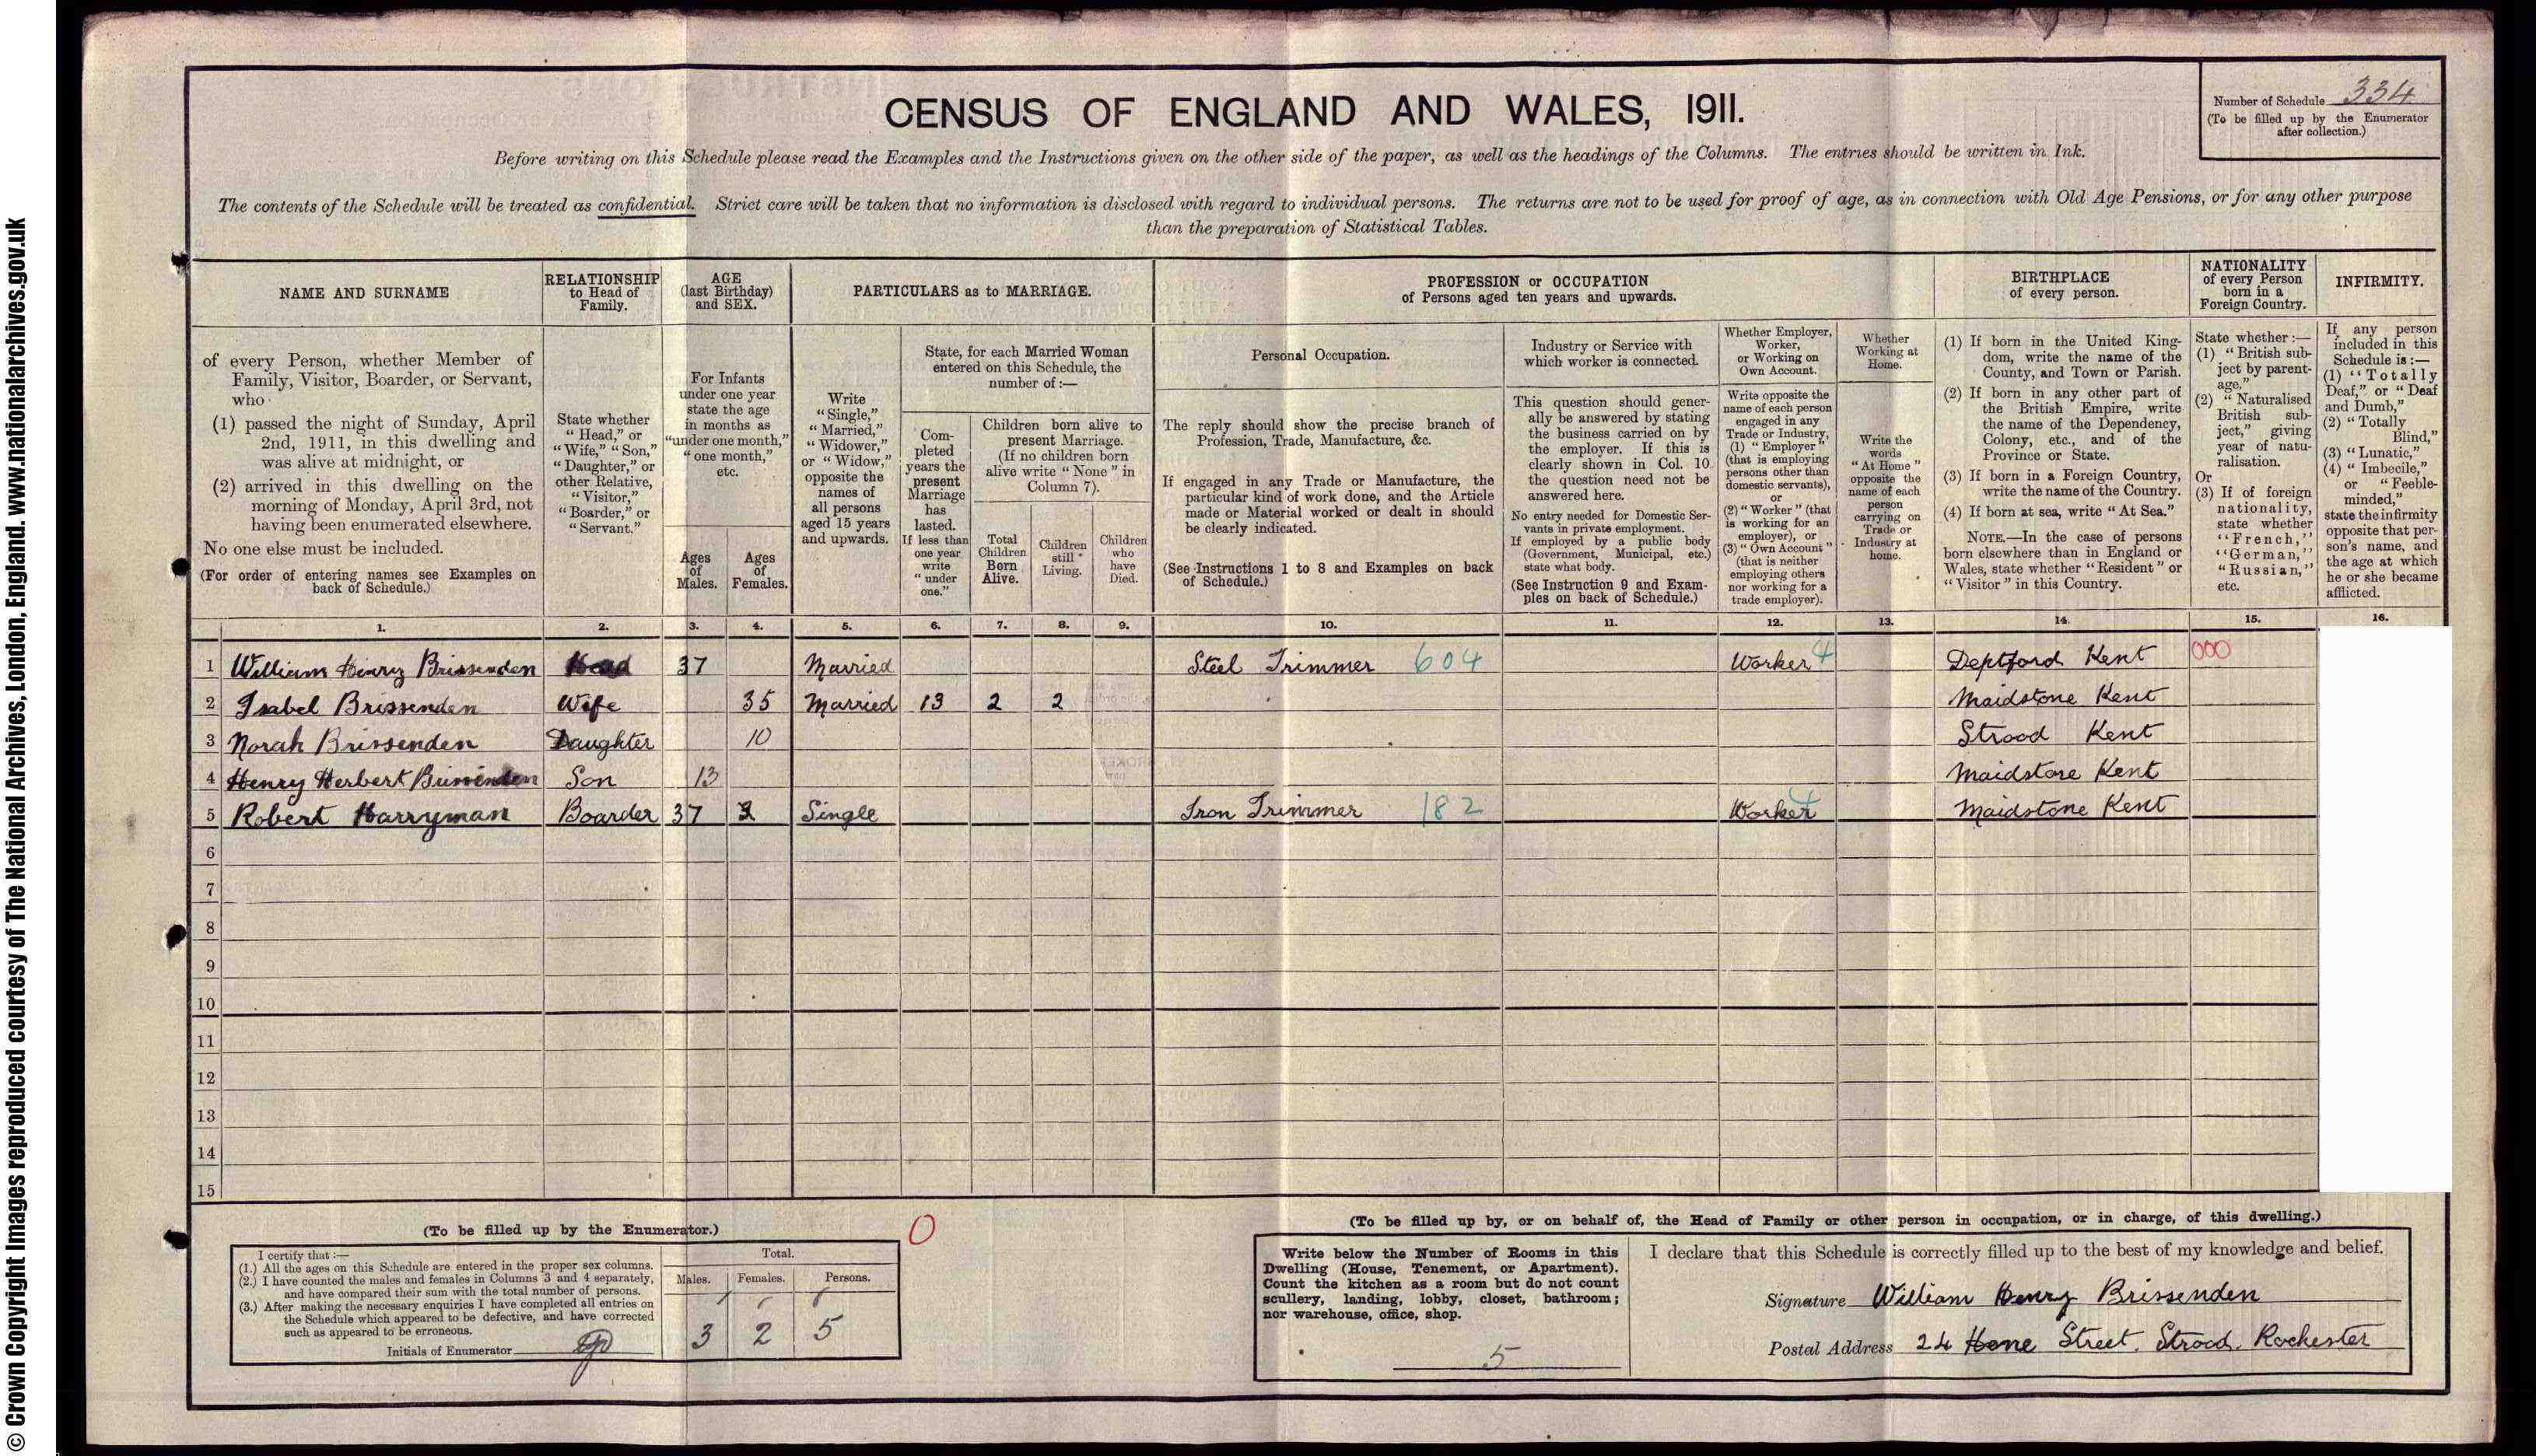 © Crown Copyright Images reproduced courtesy of The National Archives, London, England. www.nationalarchives.gov.uk
CENSUS OF ENGLAND AND WALES, 1911.
Number of Schedule 334
(To be filled up by the Enumerator
after collection.)
Before writing on this Schedule please read the Examples and the Instructions given on the other side of the paper, as well as the headings of the Columns. The entries should be written in Ink.
The contents of the Schedule will be treated as confidential. Strict care will be taken that no information is disclosed with regard to individual persons. The returns are not to be used for proof of age, as in connection with Old Age Pensions, or for any other purpose
than the preparation of Statistical Tables.
NAME AND SURNAME
of every Person, whether Member of
Family, Visitor, Boarder, or Servant,
who
(1) passed the night of Sunday, April
2nd, 1911, in this dwelling and
was alive at midnight, or
(2) arrived in this dwelling on the
morning of Monday, April 3rd, not
having been enumerated elsewhere.
No one else must be included.
(For order of entering names see Examples on
back of Schedule.)
RELATIONSHIP
to Head of
Family.
State whether
"Head," or
"Wife," "Son,"
"Daughter," or
other Relative,
"Visitor,"
"Boarder," or
"Servant."
AGE
(last Birthday)
and SEX.
For Infants
under one year
state the age
in months as
"under one month,"
"one month,"
etc.
Ages
of
Males.
Ages
of
Females.
PARTICULARS as to MARRIAGE.
Write
"Single,"
"Married,"
"Widower,"
or "Widow,"
opposite the
names of
all persons
aged 15 years
and upwards.
State, for each Married Woman
entered on this Schedule, the
number of :—
Com-
pleted
years the
present
Marriage
has
lasted.
If less than
one year
write
"under
one."
Children born alive to
present Marriage.
(If no children born
alive write "None" in
Column 7).
Total
Children
Born
Alive.
Children
still
Living.
Children
who
have
Died.
PROFESSION or OCCUPATION
of Persons aged ten years and upwards.
Personal Occupation.
The reply should show the precise branch of
Profession, Trade, Manufacture, &c.
If engaged in any Trade or Manufacture, the
particular kind of work done, and the Article
made or Material worked or dealt in should
be clearly indicated.
(See Instructions 1 to 8 and Examples on back
of Schedule.)
Industry or Service with
which worker is connected.
This question should gener-
ally be answered by stating
the business carried on by
the employer. If this is
clearly shown in Col. 10
the question need not be
answered here.
No entry needed for Domestic Ser-
vants in private employment.
If employed by a public body
(Government, Municipal, etc.)
state what body.
(See Instruction 9 and Exam-
ples on back of Schedule.)
Whether Employer,
Worker,
or Working on
Own Account.
Write opposite the
name of each person
engaged in any
Trade or Industry,
(1) "Employer"
(that is employing
persons other than
domestic servants),
or
(2) "Worker" (that
is working for an
employer), or
(3) "Own Account"
(that is neither
employing others
nor working for a
trade employer).
Whether
Working at
Home.
Write the
words
"At Home"
opposite the
name of each
person
carrying on
Trade or
Industry at
home.
BIRTHPLACE
of every person.
(1) If born in the United King-
dom, write the name of the
County, and Town or Parish.
(2) If born in any other part of
the British Empire, write
the name of the Dependency,
Colony, etc., and of the
Province or State.
(3) If born in a Foreign Country,
write the name of the Country.
(4) If born at sea, write "At Sea."
NOTE.—In the case of persons
born elsewhere than in England or
Wales, state whether "Resident" or
"Visitor" in this Country.
NATIONALITY
of every Person
born in a
Foreign Country.
State whether :—
(1) "British sub-
ject by parent-
age,"
(2) "Naturalised
British sub-
ject," giving
year of natu-
ralisation.
Or
(3) If of foreign
nationality,
state whether
"French,"
"German,"
"Russian,"
etc.
INFIRMITY.
If any person
included in this
Schedule is :—
(1) "Totally
Deaf," or "Deaf
and Dumb,"
(2) "Totally
Blind,"
(3) "Lunatic,"
(4) "Imbecile,"
or "Feeble-
minded,"
state the infirmity
opposite that per-
son's name, and
the age at which
he or she became
afflicted.
1. 2. 3. 4. 5. 6. 7. 8. 9. 10. 11. 12. 13. 14. 15. 16.
1 William Henry Brissenden Head 37 Married Steel Trimmer 604 Worker 4 Deptford Kent 000
2 Isabel Brissenden Wife 35 Married 13 2 2 Maidstone Kent
3 Norah Brissenden Daughter 10 Strood Kent
4 Henry Herbert Brissenden Son 13 Maidstone Kent
5 Robert Harryman Boarder 37 Single Iron Trimmer 182 Worker 4 Maidstone Kent
6
7
8
9
10
11
12
13
14
15
(To be filled up by the Enumerator.)
I certify that :—
(1.) All the ages on this Schedule are entered in the proper sex columns.
(2.) I have counted the males and females in Columns 3 and 4 separately,
and have compared their sum with the total number of persons.
(3.) After making the necessary enquiries I have completed all entries on
the Schedule which appeared to be defective, and have corrected
such as appeared to be erroneous.
Initials of Enumerator
Total.
Males. Females. Persons.
3 2 5
0
(To be filled up by, or on behalf of, the Head of Family or other person in occupation, or in charge, of this dwelling.)
Write below the Number of Rooms in this
Dwelling (House, Tenement, or Apartment).
Count the kitchen as a room but do not count
scullery, landing, lobby, closet, bathroom;
nor warehouse, office, shop.
5
I declare that this Schedule is correctly filled up to the best of my knowledge and belief.
Signature William Henry Brissenden
Postal Address 24 Hone Street. Strood. Rochester